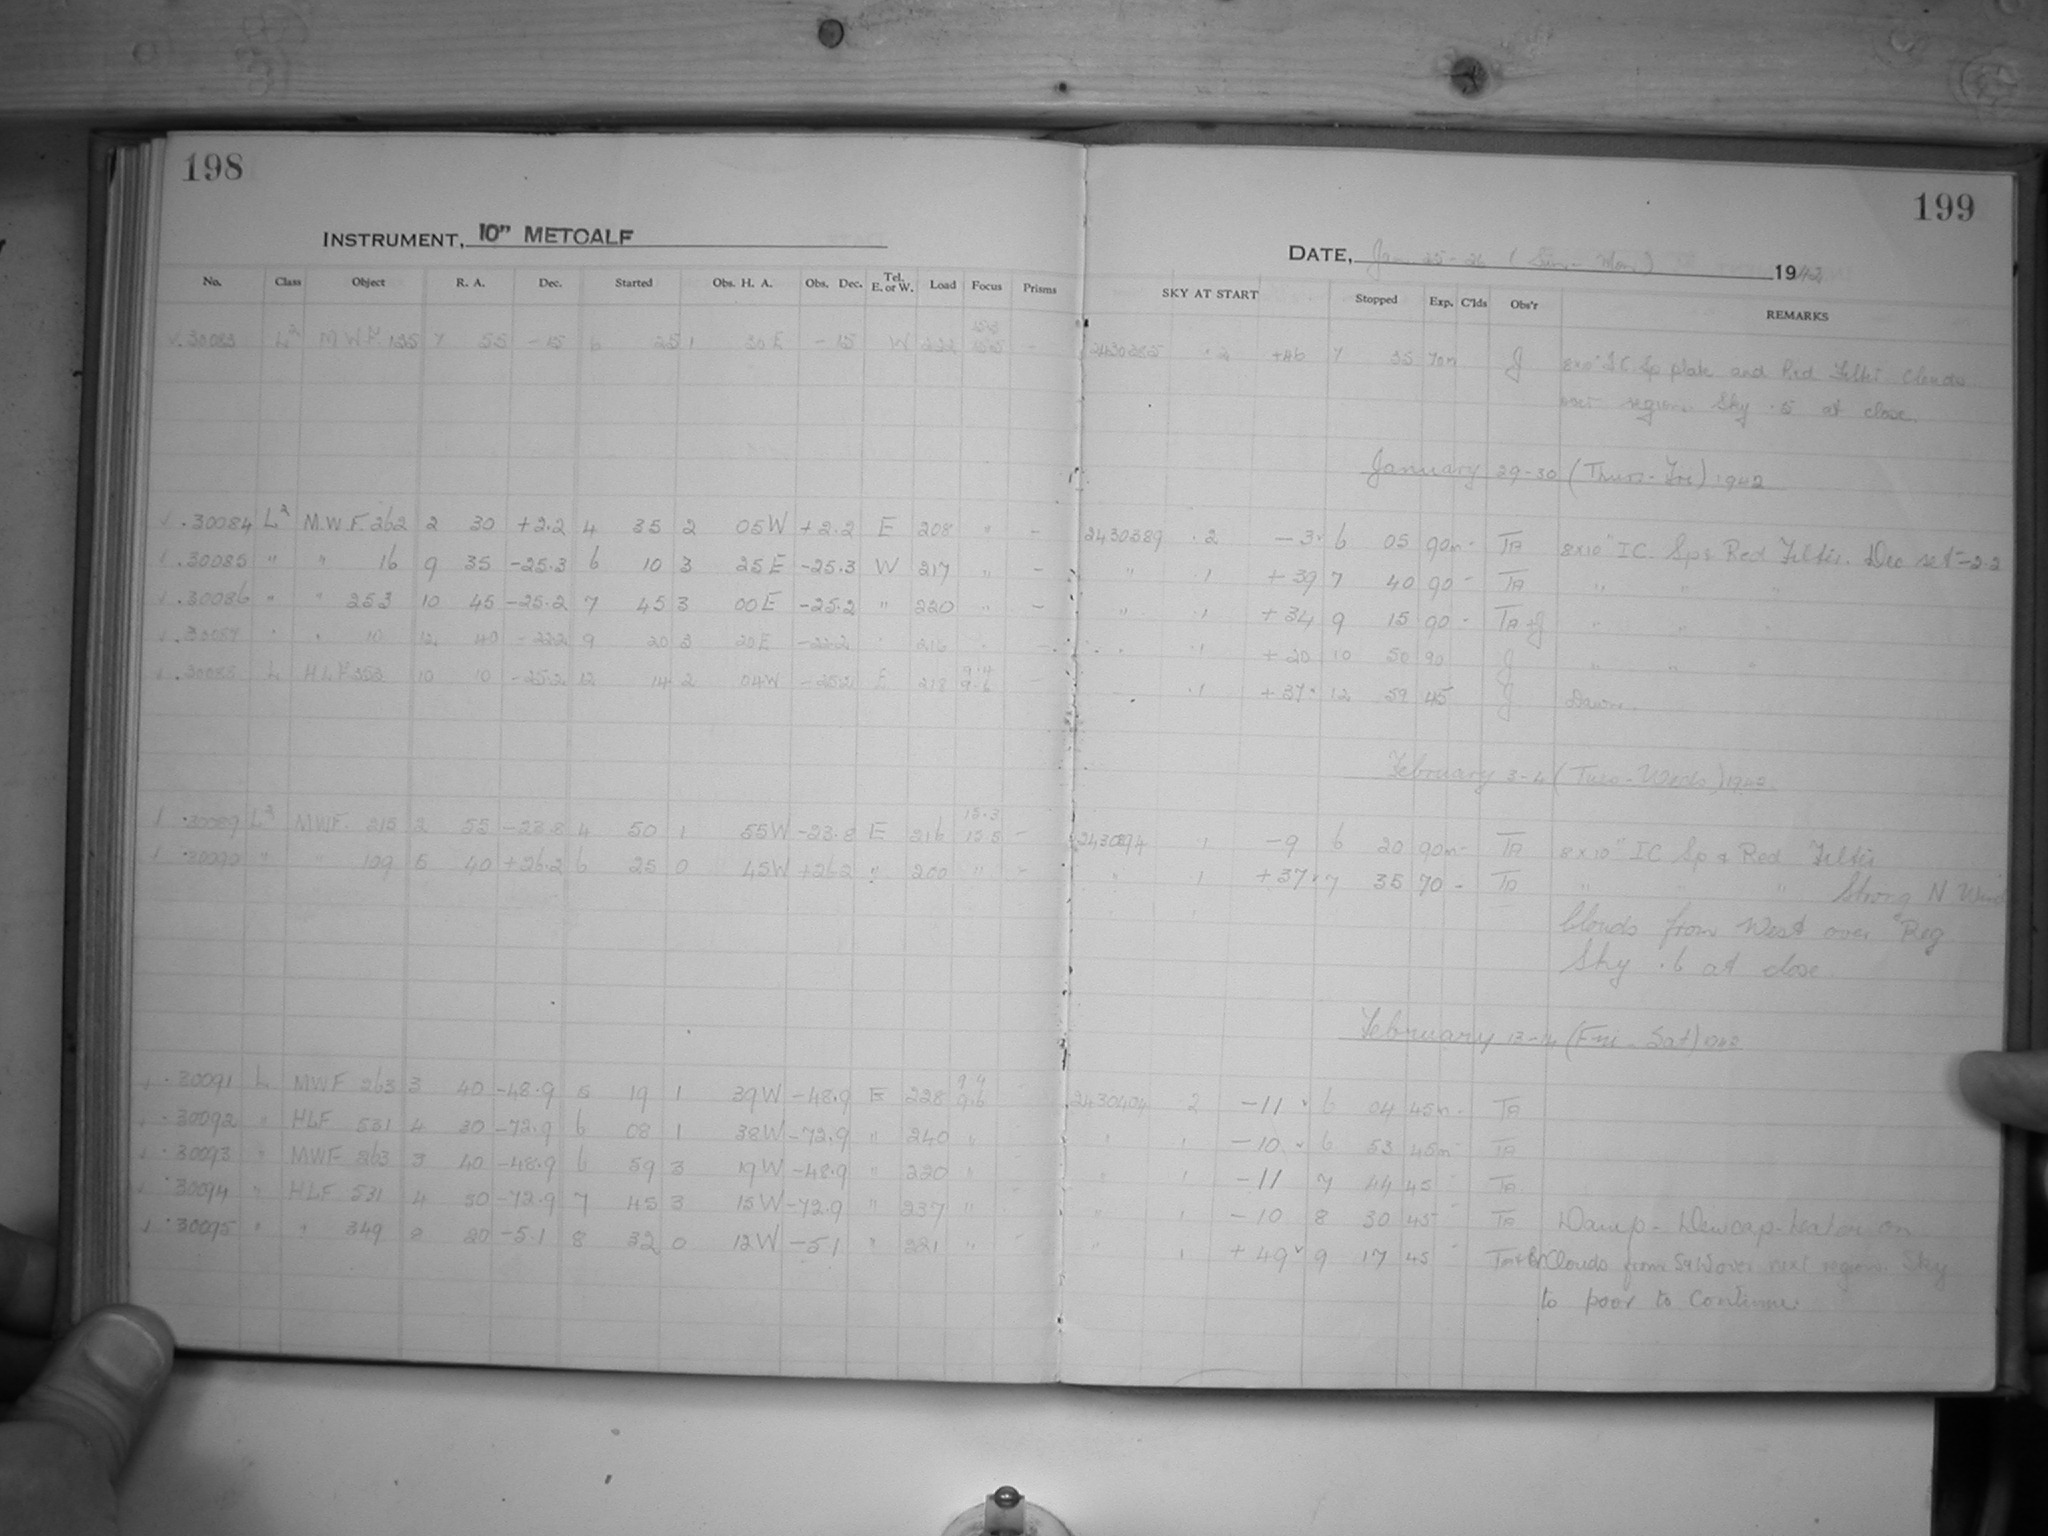 198
199
INSTRUMENT, 10" METCALF
DATE, Jan 25-26 (Sun - Mon) 1942
No. Class Object R. A. Dec. Started Obs. H. A. Obs. Dec. Tel. E. or W. Load Focus Prisms SKY AT START Stopped Exp. C'lds Obs'r REMARKS
.30083 L2 M.W.F. 135 7 55 -15 6 25 1 30E -15 W 222 - 2430385 .2 +46 7 35 70m J 8x10" IC Sp plate and Red Filter Clouds
over region. Sky .5 at close.
January 29-30 (Thurs-Fri) 1942
.30084 L2 M.W.F. 262 2 30 +2.2 4 35 2 05W +2.2 E 208 " - 2430389 .2 -3 6 05 90m - TA 8x10" IC. Sp & Red Filter. Dec set -2.2
.30085 " " 16 9 35 -25.3 6 10 3 25E -25.3 W 217 " - " .1 +39 7 40 90 - TA " " "
.30086 " " 253 10 45 -25.2 7 45 3 00E -25.2 " 220 " - " .1 +34 9 15 90 - TA+J " " "
.30087 " " 10 12 40 -22.2 9 20 3 20E -22.2 " 216 " - " .1 +20 10 50 90 J " " "
.30088 L HLF 353 10 10 -25.2 12 14 2 04W -25.2 E 218 9.4 9.6 - " .1 +37 12 59 45 J Dawn.
February 3-4 (Tues-Weds) 1942.
.30089 L2 MWF. 215 2 55 -23.8 4 50 1 55W -23.8 E 216 15.3 15.5 - 2430394 1 -9 6 20 90m - TA 8x10" IC Sp & Red Filter
.30090 " " 109 5 40 +26.2 6 25 0 45W +26.2 " 200 " - " 1 +37 7 35 70 - TA " " " Strong N Wind
Clouds from West over Reg
Sky .6 at close
February 13-14 (Fri - Sat) 1942
.30091 L MWF 263 3 40 -48.9 5 19 1 39W -48.9 E 228 9.4 9.6 - 2430404 2 -11 6 04 45m - TA
.30092 " HLF 531 4 30 -72.9 6 08 1 38W -72.9 " 240 " " 1 -10 6 53 45m - TA
.30093 " MWF 263 3 40 -48.9 6 59 3 19W -48.9 " 220 " " 1 -11 7 44 45 TA
.30094 " HLF 531 4 30 -72.9 7 45 3 15W -72.9 " 237 " " 1 -10 8 30 45 TA Damp - Dewcap heater on
.30095 " " 349 8 20 -5.1 8 32 0 12W -5.1 " 221 " " 1 +49 9 17 45 Clouds from S&W over next region. Sky
to poor to Continue.